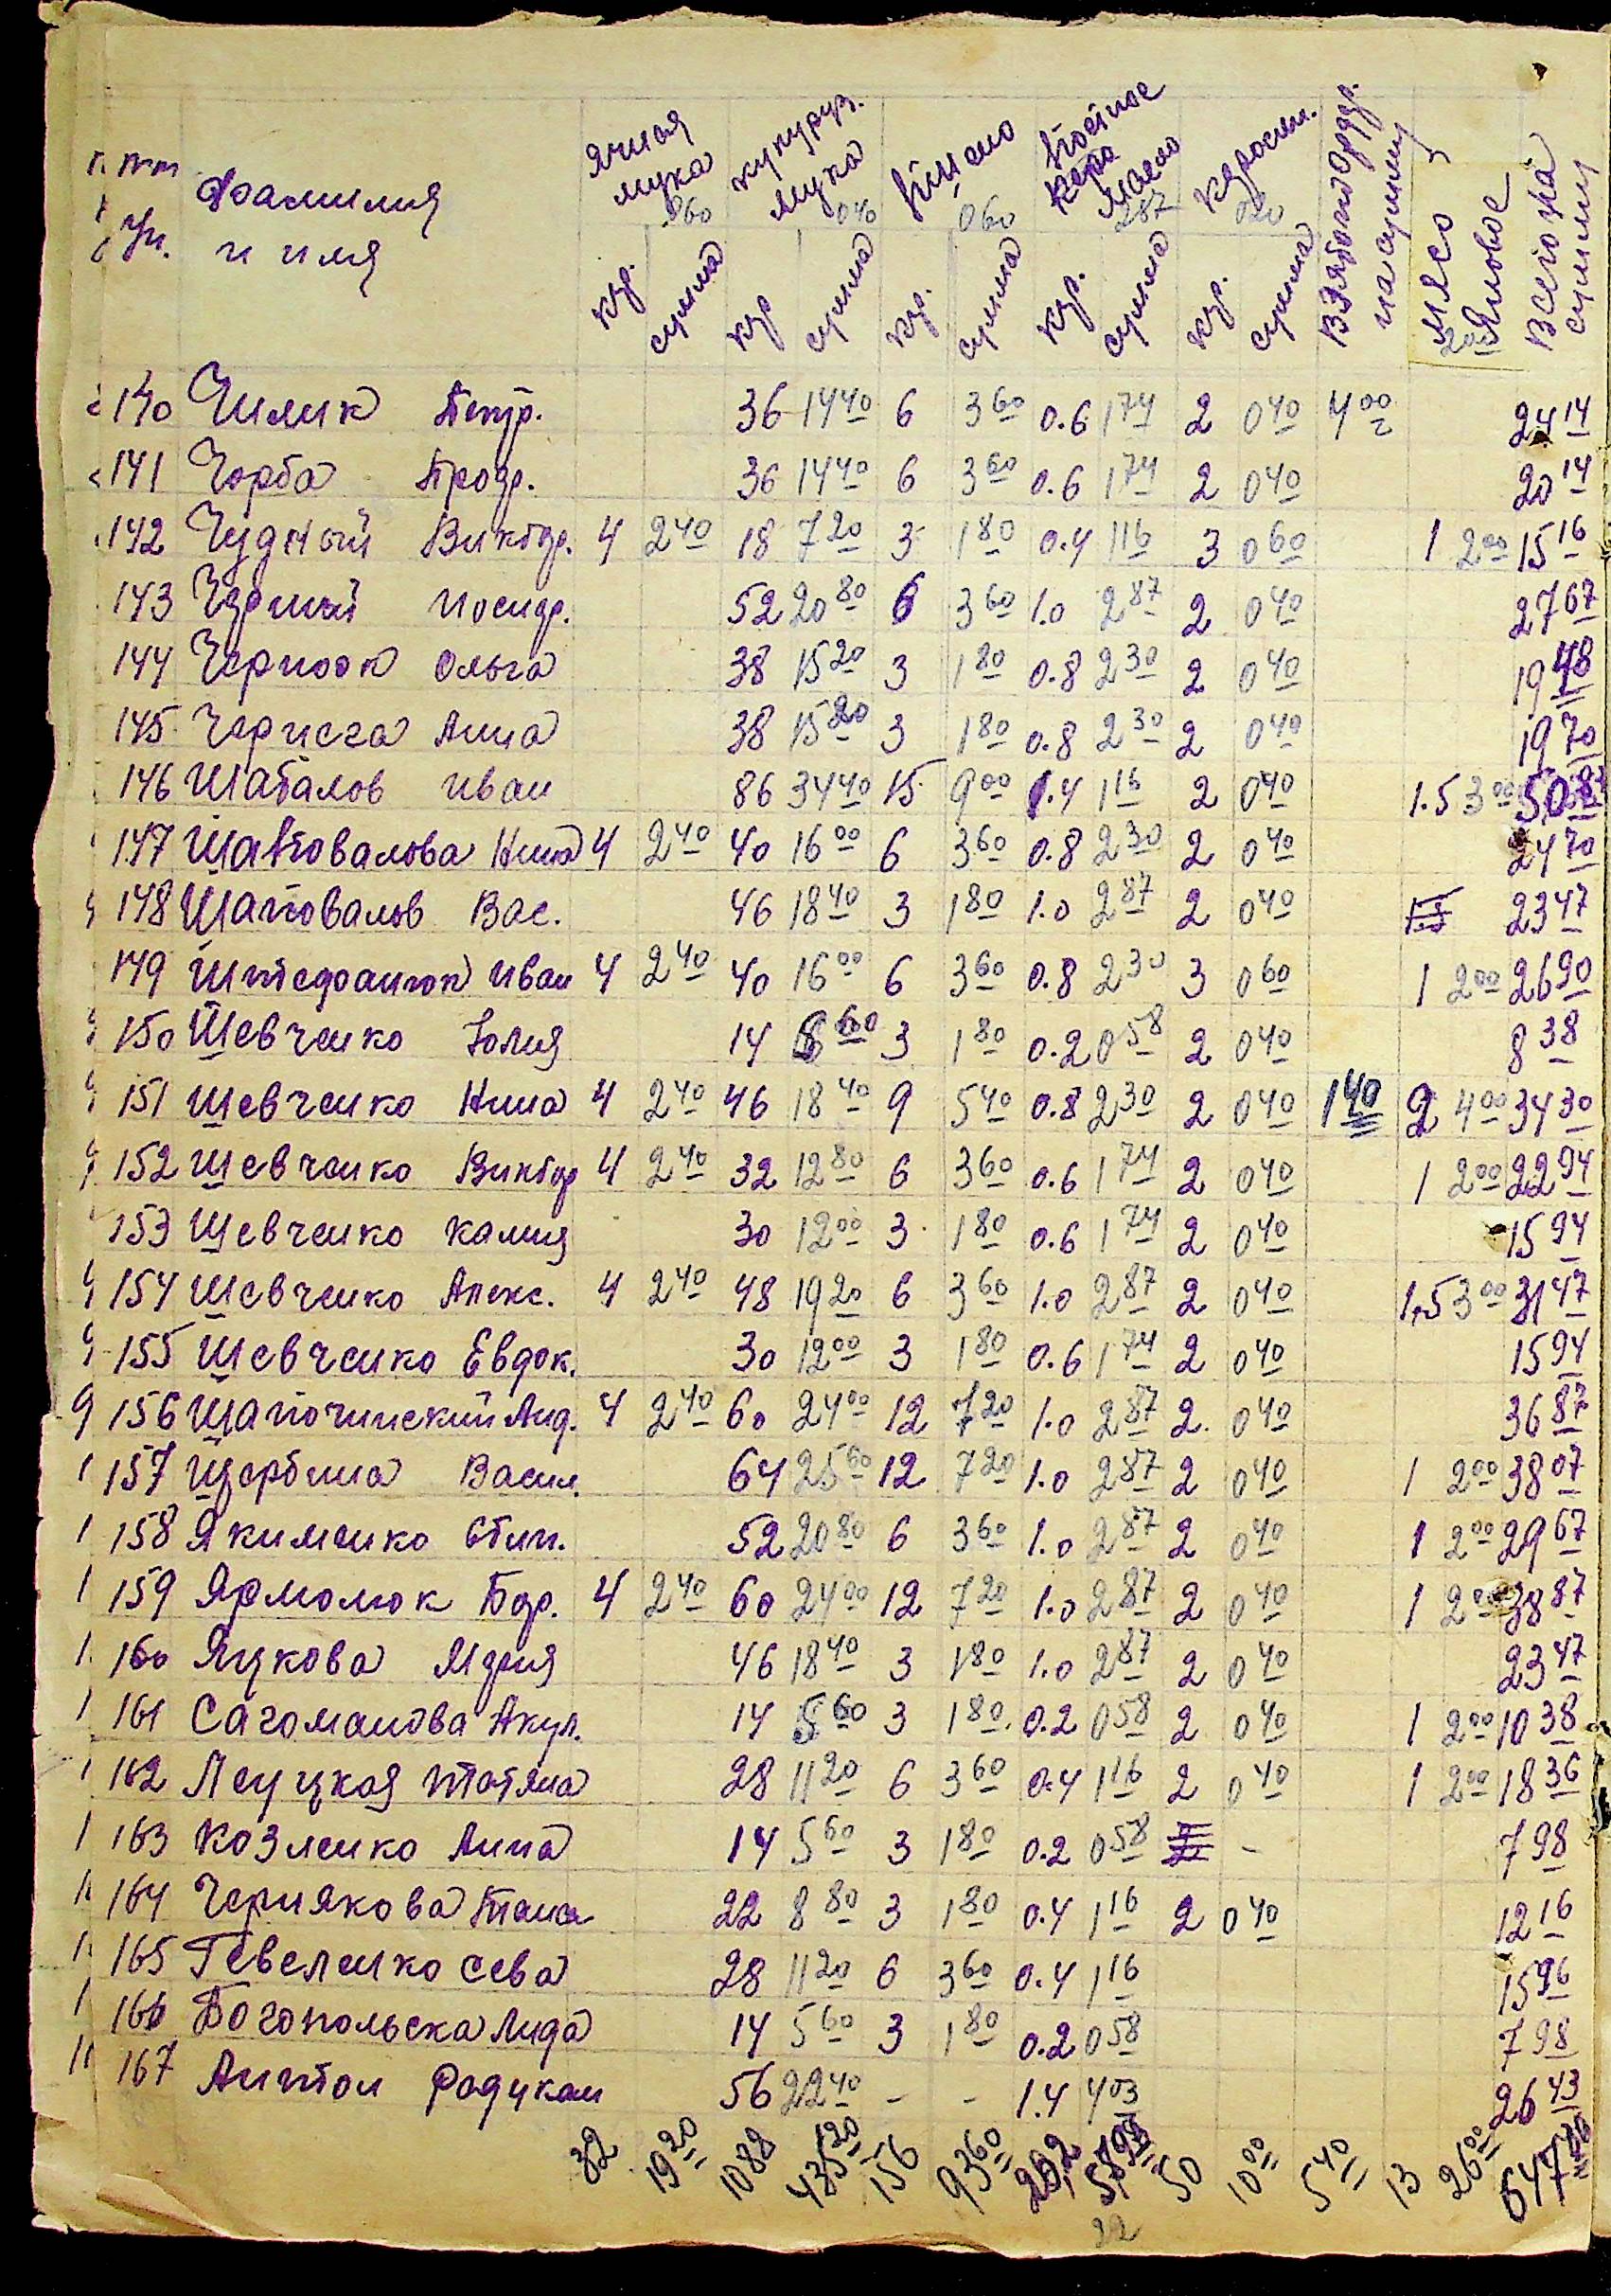 Фамилия и имя
Ячная мука 060 кгр. сумма
кукуруз. мука 040 кгр сумма
Пшено 060 кгр. сумма
Постное масло 287 кгр. сумма
Керосин. 020 кгр. сумма
на сумму
Мясо Яловое 200
Всего на сумму
140 Чилик Петр. 36 14 40 6 3 60 0.6 1 74 2 0 40 4 00 24 14
141 Чорба Прод. 36 14 40 6 3 60 0.6 1 74 2 0 40 20 14
142 Чудный Виктор. 4 2 40 18 7 20 3 1 80 0.4 1 16 3 0 60 1 2 00 15 16
143 Черный Иосиф. 52 20 80 6 3 60 1.0 2 87 2 0 40 27 67
144 Ольга 38 15 20 3 1 80 0.8 2 30 2 0 40 19
145 Анна 38 15 20 3 1 80 0.8 2 30 2 0 40 19 70
146 Шабалов Иван 86 34 40 15 9 00 1.4 1 16 2 0 40 1.5 3 00 50
147 Шаповалова Нина 4 2 40 40 16 00 6 3 60 0.8 2 30 2 0 40 24 70
148 Шаповалов Вас. 46 18 40 3 1 80 1.0 2 87 2 0 40 23 47
149 Иван 4 2 40 40 16 00 6 3 60 0.8 2 30 3 0 60 1 2 00 26 90
150 Шевченко Юлия 14 60 3 1 80 0.2 0 58 2 0 40 8 38
151 Шевченко Нина 4 2 40 46 18 40 9 5 40 0.8 2 30 2 0 40 1 40 2 4 00 34 30
152 Шевченко Виктор 4 2 40 32 12 80 6 3 60 0.6 1 74 2 0 40 1 2 00 22 94
153 Шевченко Калиц 30 12 00 3 1 80 0.6 1 74 2 0 40 15 94
154 Шевченко Алекс. 4 2 40 48 19 20 6 3 60 1.0 2 87 2 0 40 1,5 3 00 31 47
155 Шевченко Евдок. 30 12 00 3 1 80 0.6 1 74 2 0 40 15 94
156 Шапочинский Лид. 4 2 40 60 24 00 12 7 20 1.0 2 87 2. 0 40 36 87
157 Щербина Васил. 64 25 60 12 7 20 1.0 2 87 2 0 40 1 2 00 38 07
158 Якименко 52 20 80 6 3 60 1.0 2 87 2 0 40 1 2 00 29 67
159 Ярмолюк 4 2 40 60 24 00 12 7 20 1.0 2 87 2 0 40 1 2 00 38 87
160 Яцкова Мария 46 18 40 3 1 80 1.0 2 87 2 0 40 23 47
161 Сагоманова Акул. 14 5 60 3 1 80 0.2 0 58 2 0 40 1 2 00 10 38
162 28 11 20 6 3 60 0.4 1 16 2 0 40 1 2 00 18 36
163 Козленко Анна 14 5 60 3 1 80 0.2 0 58 - 7 98
164 Чернякова 22 8 80 3 1 80 0.4 1 16 2 0 40 12 16
165 Гевеленко Сева 28 11 20 6 3 60 0.4 1 16 15 96
166 Богопольска Лида 14 5 60 3 1 80 0.2 0 58 7 98
167 Антон Фадукан 56 22 40 - - 1.4 4 03 26 43
32 19 20 1088 435 20 156 93 60 50 10 00 5 40 13 26 00 647